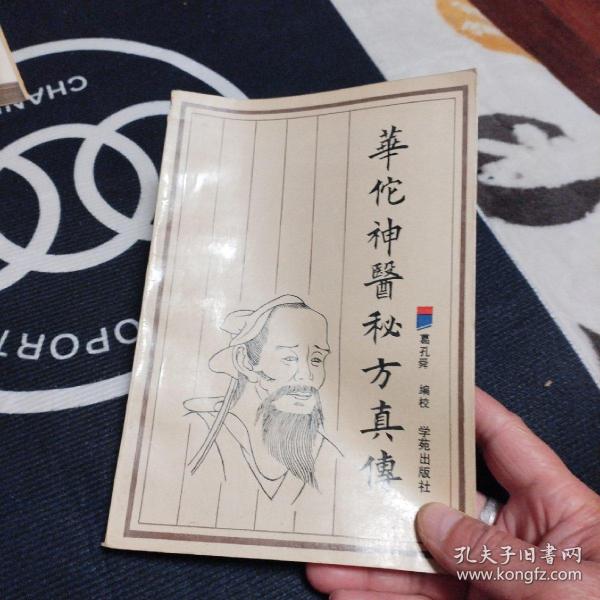 華佗神醫秘方真傳
葛孔舜 编校 学苑出版社
CHAN
OPORT
孔夫子旧书网
www.kongfz.com